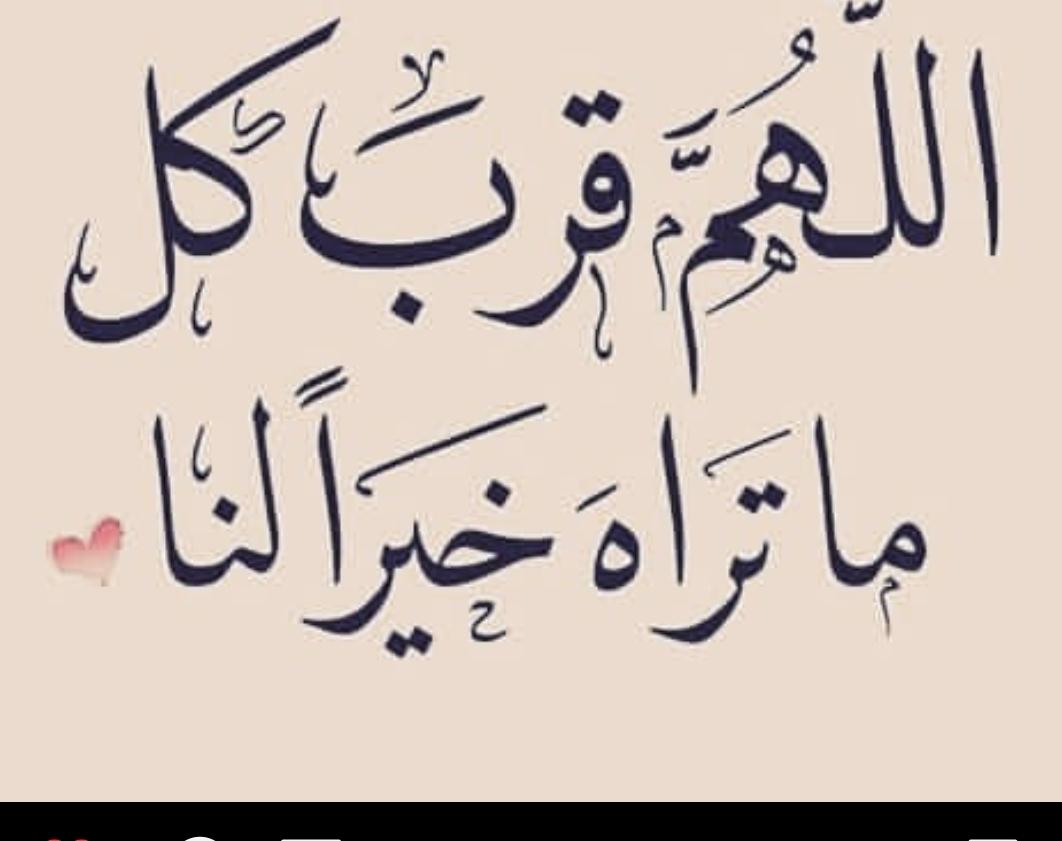 اللّهُمَّ قربَ كل
ما تَراهَ خَيراً لنا